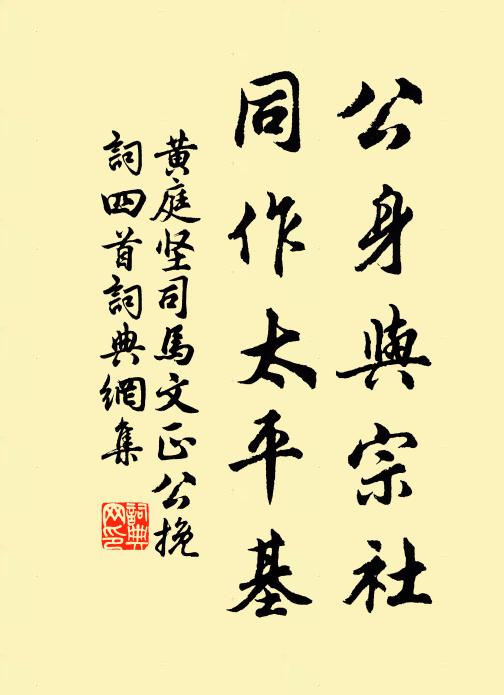 公身與宗社
同作太平基
黄庭坚司馬文正公挽
詞四首詞典網集
詞典
网印